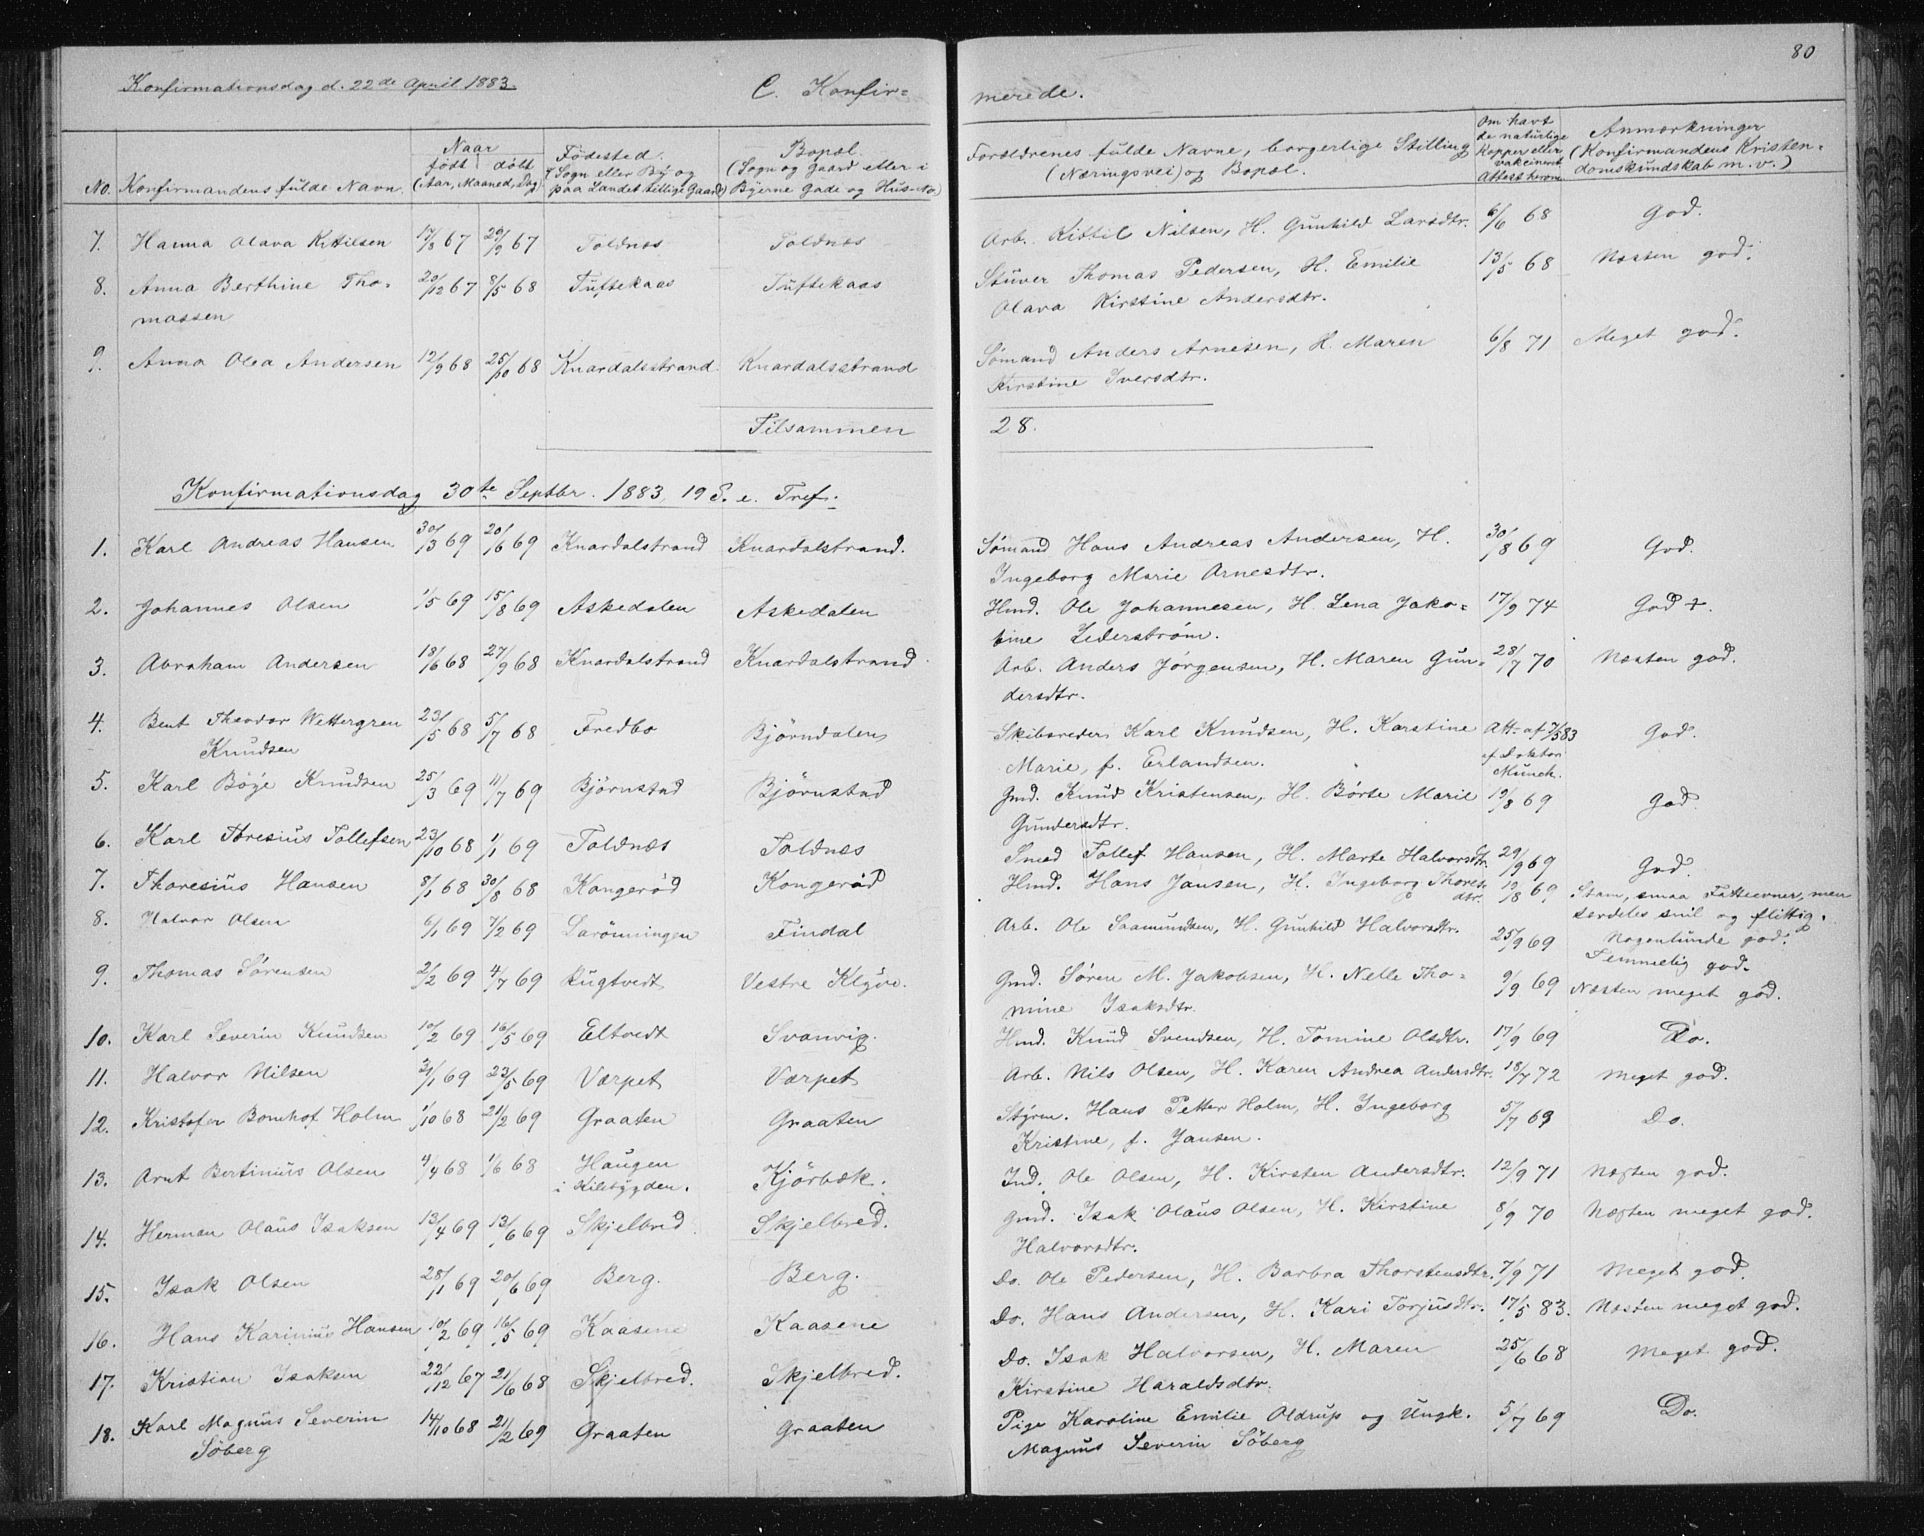 80
Konfirmationsdag d. 22de April 1883.
C. Konfir=
merede.
No.
Konfirmandens fulde Navn.
Naar
født | døbt
(Aar, Maaned, Dag)
Fødested.
(Sogn eller By og
paa Landet tillige Gaard)
Bopæl.
(Sogn og Gaard eller i
Byerne Gade og Hus-No)
Forældrenes fulde Navne, borgerlige Stilling
(Næringsvei) og Bopæl.
Om havt
de naturlige
Kopper eller
vakcineret
Attest herom
Anmærkninger
(Konfirmandens Kristen=
domskundskab m. v.)
7. Hanna Olava Kittilsen 17/8 67 29/9 67 Toldnæs Toldnæs Arb. Kittil Nilsen, H. Gunhild Larsdtr. 6/6 68 God.
8. Anna Berthine Tho= 20/12 67 8/5 68 Tuftekaas Tuftekaas Stuver Thomas Pedersen, H. Emilie 13/5 68 Næsten god.
massen Olava Kirstine Andersdtr.
9. Anna Olea Andersen 12/9 68 25/10 68 Knardalsstrand Knardalsstrand Sømand Anders Arnesen, H. Maren 6/8 71 Meget god.
Kirstine Iversdtr.
Tilsammen 28.
Konfirmationsdag 30te Septbr. 1883, 19 S. e. Tref.
1. Karl Andreas Hansen 30/3 69 20/6 69 Knardalstrand Knardalstrand. Sømand Hans Andreas Andersen, H. 30/8 69 God.
Ingeborg Marie Arnesdtr.
2. Johannes Olsen 1/5 69 15/8 69 Askedalen Askedalen Hmd. Ole Johannesen, H. Lena Jako= 17/9 74 God +.
bine Lederstrøm.
3. Abraham Andersen 18/6 68 27/9 68 Knardalstrand Knardalstrand. Arb. Anders Jørgensen, H. Maren Gun= 28/7 70 Næsten god.
dersdtr.
4. Bent Theodor Wettergren 23/5 68 5/7 68 Fredbo Bjørndalen Skibsreder Karl Knudsen, H. Karstine Att. af 7/5 83 God.
Knudsen Marie, f. Erlandsen. af Doktor
Munch.
5. Karl Böye Knudsen 25/3 69 11/7 69 Bjørnstad Bjørnstad Gmd. Knud Kristensen, H. Børte Marie 19/8 69 God.
Gundersdtr.
6. Karl Toresius Tollefsen 23/10 68 1/1 69 Toldnæs Toldnæs Smed Tollef Hansen, H. Marte Halvorsdtr. 29/9 69 God.
7. Thoresius Hansen 8/1 68 30/8 68 Kongerød Kongerød Hmd. Hans Jansen, H. Ingeborg Thores= 19/8 69 Stam, smaa Fatteevner, men
dtr. særdeles snil og flittig.
8. Halvor Olsen 6/1 69 7/2 69 Larønningen Findal Arb. Ole Saamundsen, H. Gunhild Halvorsdtr. 25/9 69 Nogenlunde god.
Temmelig god.
9. Thomas Sørensen 2/2 69 4/7 69 Rugtvedt Vestre Klyve. Gmd. Søren M. Jakobsen, H. Nelle Tho= 9/9 69 Næsten meget god.
mine Isaksdtr.
10. Karl Severin Knudsen 10/2 69 16/5 69 Eltvedt Svanvig. Hmd. Knud Svendsen, H. Tomine Olsdtr. 17/9 69 Do.
11. Halvor Nilsen 31/1 69 23/5 69 Værpet Værpet Arb. Nils Olsen, H. Karen Andrea Andersdtr. 18/7 72 Meget god.
12. Kristofer Bomhof Holm 1/10 68 21/2 69 Graaten Graaten Styrm. Hans Petter Holm, H. Ingeborg 5/7 69 Do.
Kristine, f. Jansen.
13. Arnt Bertinius Olsen 4/4 68 1/6 68 Haugen Kjørbæk. Ind. Ole Olsen, H. Kirsten Andersdtr. 12/9 71 Næsten god.
i Kilebygden.
14. Herman Olaus Isaksen 13/4 69 13/6 69 Skjelbred Skjelbred. Gmd. Isak Olaus Olsen, H. Kirstine 8/9 70 Næsten meget god.
Halvorsdtr.
15. Isak Olsen 28/1 69 20/6 69 Berg. Berg. Do. Ole Pedersen, H. Barbra Thorstensdtr. 7/9 71 Meget god.
16. Hans Karinius Hansen 10/2 69 16/5 69 Kaasene Kaasene Do. Hans Andersen, H. Kari Torjusdtr. 17/5 83. Næsten meget god.
17. Kristian Isaksen 22/12 67 21/6 68 Skjelbred. Skjelbred. Do. Isak Halvorsen, H. Maren 25/6 68 Meget god.
Kirstine Haraldsdtr.
18. Karl Magnus Severin 14/10 68 21/2 69 Graaten Graaten Pige Karoline Emilie Oldrup og Ungk. 5/7 69 Do.
Søberg Magnus Severin Søberg